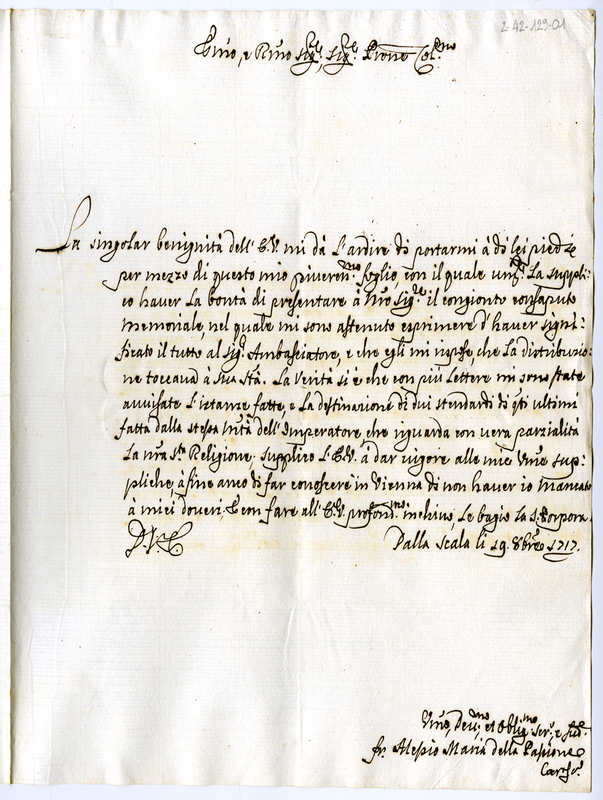 2-A2-129-01
Emo, e Rmo Sigre, Sigre Prone Colmo
La singolar benignità dell' E.V. mi dà l'ardire di portarmi à di lei piedi
per mezzo di questo mio riverenmo foglio, con il quale la suppli:
co haver la bontà di presentare à Nro Sigre il congionto consaputo
memoriale, nel quale mi sono astenuto esprimere d'haver signi:
ficato il tutto al Sigr Ambasciatore, e che egli mi rispose, che la distributio:
ne toccava à Sua Stà. La Verità si è che con più lettere mi sono state
avvisate l'istanze fatte, e la destinazione di dui stendardi di qti ultimi
fatta dalla stessa Mtà dell' Imperatore, che riguarda con vera parzialità
la nra Sta Religione; supplico l'E.V. à dar vigore alle mie Umme sup:
pliche, à fine anco di far conoscere in Vienna di non haver io mancato
à miei doveri. E con fare all' E.V. profondmo inchino, le bagio la S. Porpora.
D.V.E. Dalla Scala li 19. 8bre 1717.
Ummo, Devmo, et Obligmo Serre
fr. Alessio Maria della Passione